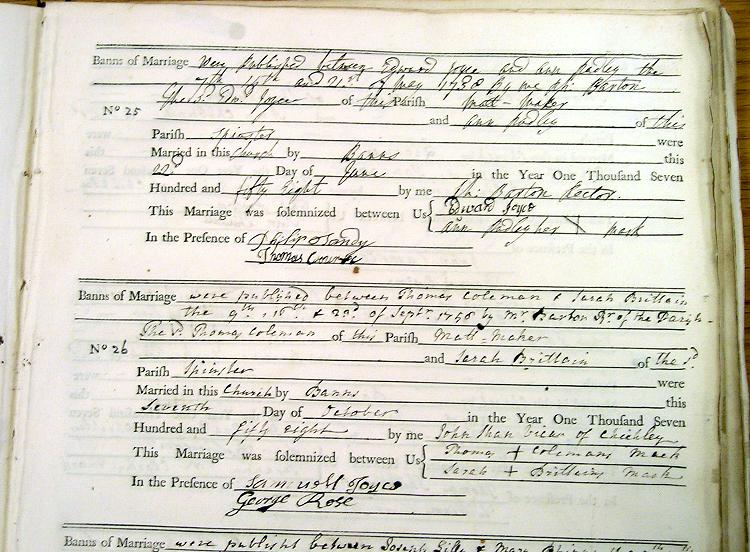 Banns of Marriage were published between Edward Joyce and ann Padley the
7th 14th and 21st of May 1758 By me Barton
No 25 The sd Edwd Joyce of this Parish Matt-maker
and ann Padley of this
Parish spinster were
Married in this Church by Banns this
22d Day of June in the Year One Thousand Seven
Hundred and fifty Eight by me Barton Rector.
This Marriage was solemnized between Us Edward Joyce
ann Padley her X mark
In the Presence of Philip Dandy
Thomas
Banns of Marriage were published between Thomas Coleman & Sarah Brittain
the 9th, & 23d of Septr 1758 by Mr Barton Rr of the Parish
No 26 The sd Thomas Coleman of this Parish Matt-Maker
and Sarah Brittain of the sd
Parish Spinster were
Married in this Church by Banns this
Seventh Day of October in the Year One Thousand Seven
Hundred and fifty Eight by me John Shan Vicar of Chichley
This Marriage was solemnized between Us Thomas + Colemans Mark
Sarah + Brittains Mark
In the Presence of Samuell Joyce
George Rose
Banns of Marriage were publisht between Joseph & Mary